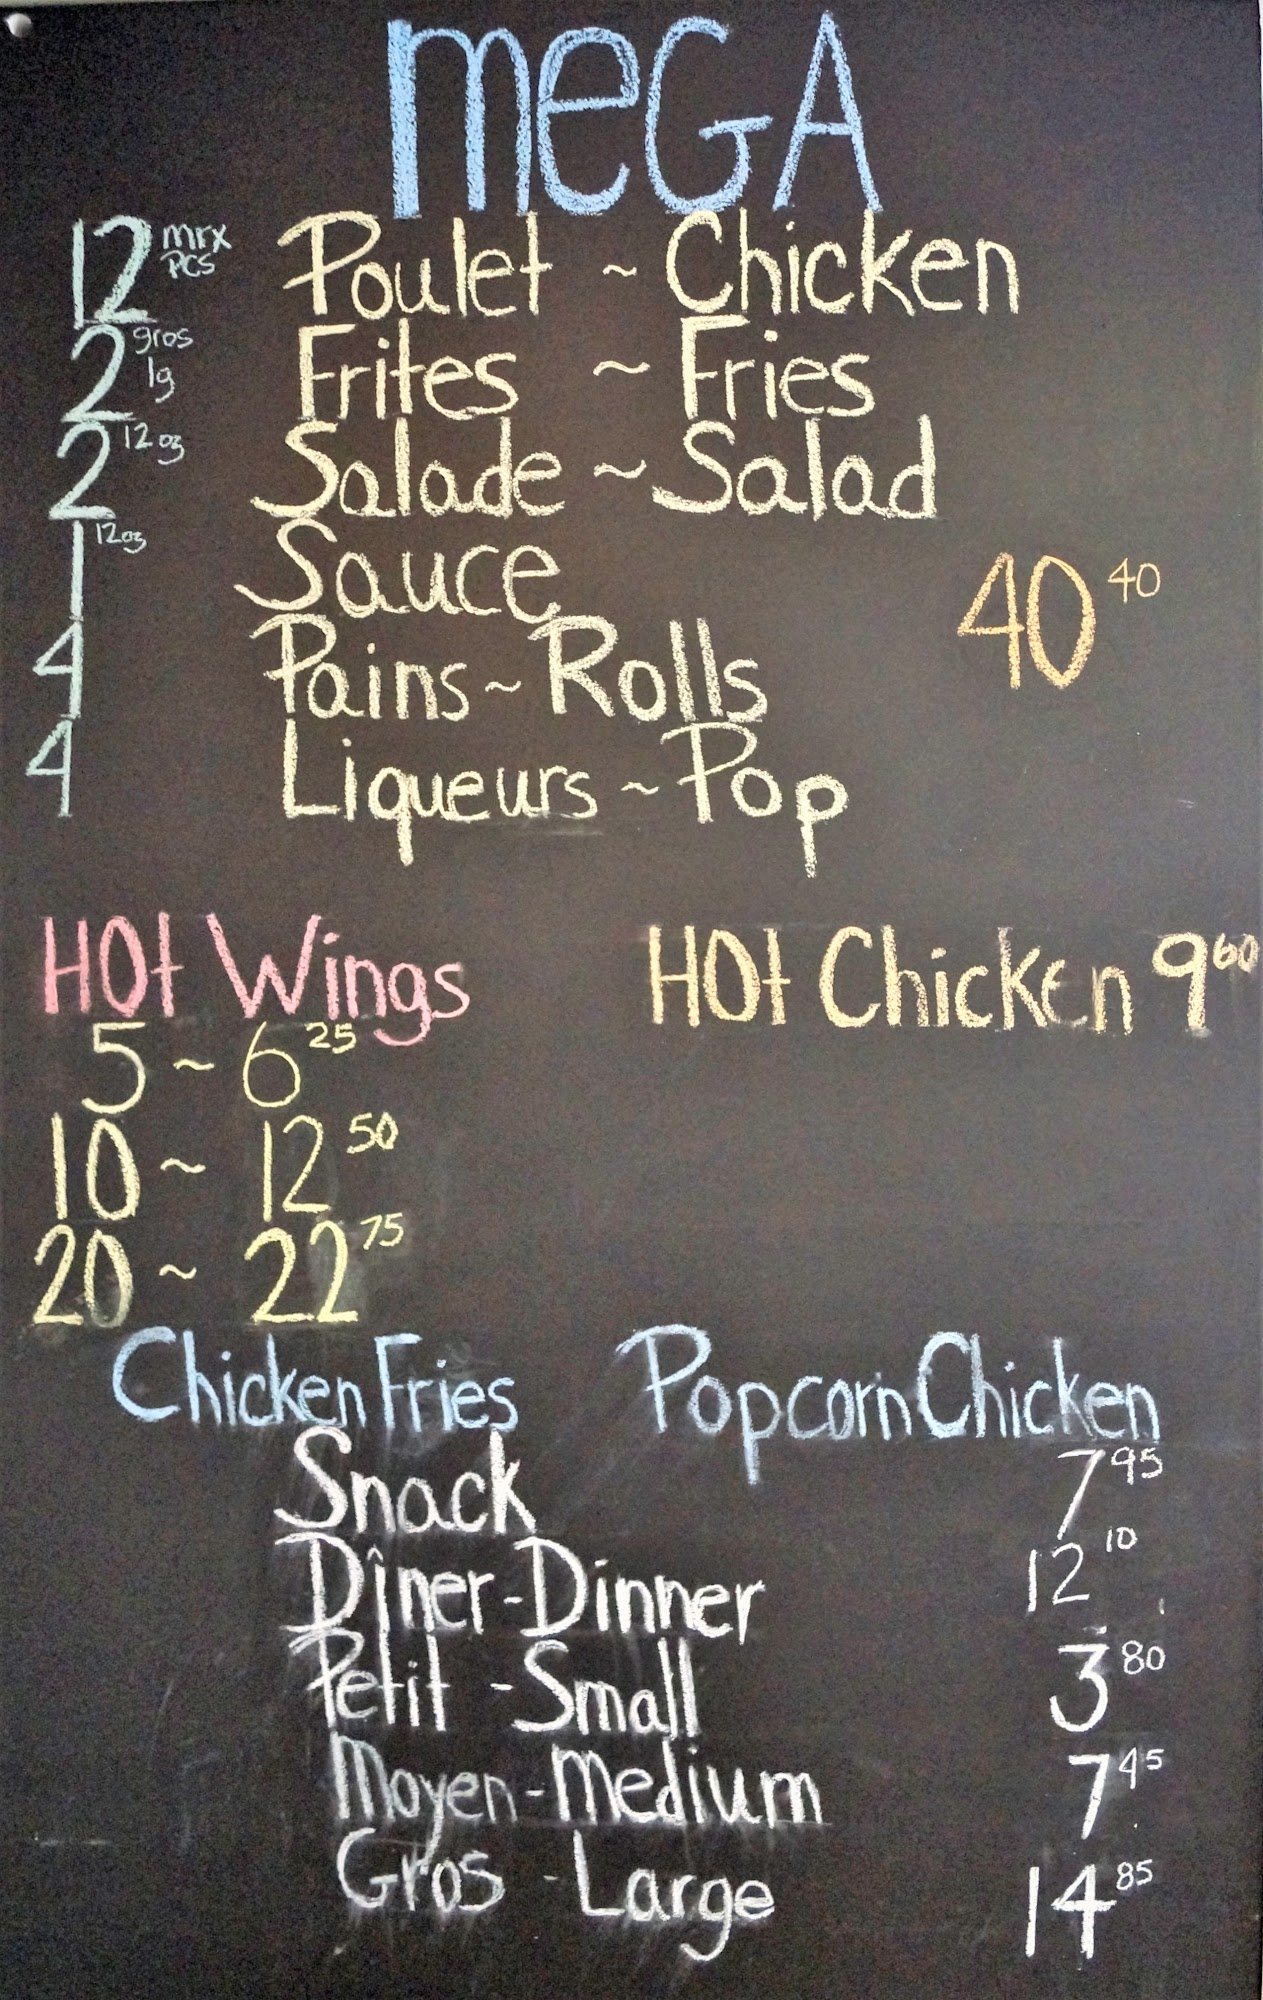 meGA
12 mrx PCS Poulet ~ Chicken
2 gros lg Frites ~ Fries
2 12oz Salade ~ Salad
1 12oz Sauce
40 40
4 Pains ~ Rolls
4 Liqueurs ~ Pop
HOt Wings
HOt Chicken 9 60
5 ~ 6 25
10 ~ 12 50
20 ~ 22 75
Chicken Fries Popcorn Chicken
Snack 7 95
Dîner - Dinner 12 10
Petit - Small 3 80
Moyen - Medium 7 45
Gros - Large 14 85